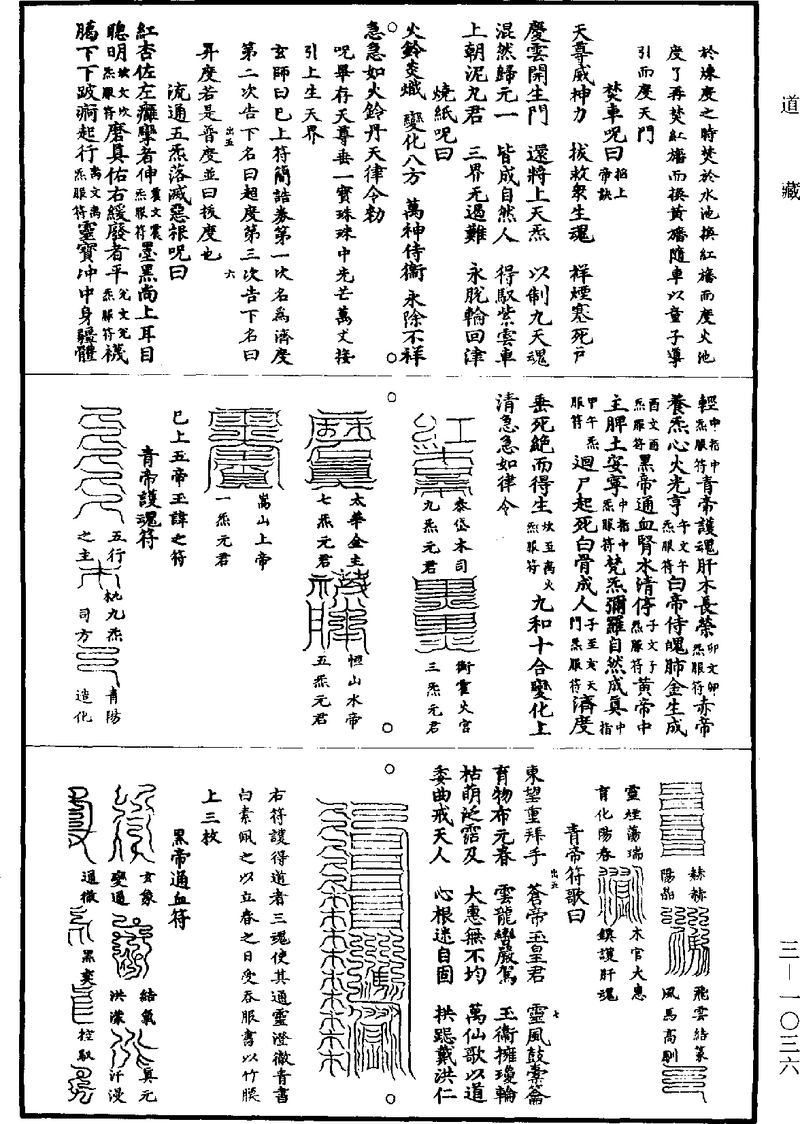 道藏
於煉度之時焚於水池換紅旛而度火池
度了再焚紅旛而換黃旛隨車以童子導
引而度天門
焚車呪曰 招上帝訣
天尊威神力 拔救衆生魂 祥煙塞死戶
慶雲開生門 還將上天炁 以制九天魂
混然歸元一 皆成自然人 得馭紫雲車
上朝泥九君 三界无遏難 永脫輪回津
燒紙呪曰
火鈴炎熾 變化八方 萬神侍衞 永除不祥
急急如火鈴丹天律令勑
呪畢存天尊垂一寶珠珠中光芒萬丈接
引上生天界
玄師曰已上符簡誥券第一次名爲濟度
第二次告下名曰超度第三次告下名曰
昇度若是普度並曰拔度也
出五 六
流通五炁落滅惡根呪曰
紅杏佐左癱攣者伸 炁服符 震文震 墨黑尚上耳目
聰明 炁服符 坎文坎 磨具佑右緩廢者平 炁服符 兌文兌 襪
膓下下跛痾起行 炁服符 离文离 靈寶冲中身韞體
輕 炁服符 中指中 青帝護魂肝木長榮 炁服符 卯文卯 赤帝
養炁心火光亨 炁服符 午文午 白帝侍魄肺金生成
炁服符 酉文酉 黑帝通血腎水清停 炁服符 子文子 黃帝中
主脾土安寧 炁服符 中指中 梵炁彌羅自然成真 中指
服符 甲午炁 迴尸起死白骨成人 門炁服符 子至亥天 濟度
垂死絕而得生 炁服符 坎至离火 九和十合變化上
清急急如律令
泰岱木司
九炁元君
衡霍火宮
三炁元君
太華金主
七炁元君
恒山水帝
五炁元君
嵩山上帝
一炁元君
已上五帝玉諱之符
青帝護魂符
五行之主
九炁司方
青陽造化
赫赫陽晶
飛雲結篆
風馬高馴
靈煙蕩瑞
育化陽春
木官大惠
鎮護肝魂
青帝符歌曰
出五 七
東望重拜手 蒼帝玉皇君 靈風鼓橐籥
育物布元春 雲龍巒嚴駕 玉衞擁瓊輪
枯萌泛霑及 大惠無不均 萬仙歌以道
委曲戒天人 心根迷自固 拱跽戴洪仁
右符護得道者三魂使其通靈澄徹青書
白素佩之以立春之日受吞服書以竹膜
上三枚
黑帝通血符
玄象變通
結氣洪濛
真元汗漫
通徹
黑爽
控馭
三—一〇三六